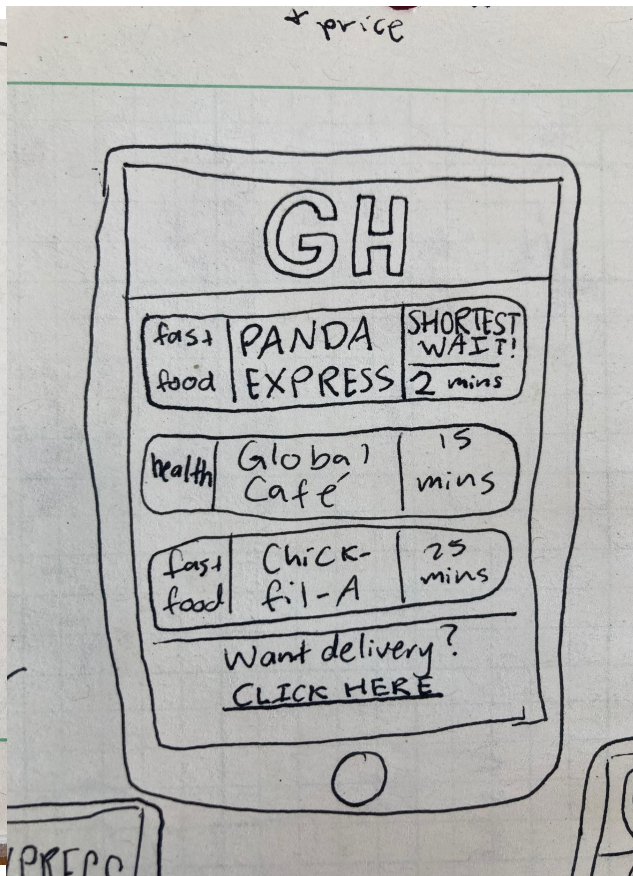 + price
GH
fast
food
PANDA
EXPRESS
SHORTEST
WAIT!
2 mins
health
Global
Café
15
mins
fast
food
Chick-
fil-A
25
mins
Want delivery?
CLICK HERE
XPRESS